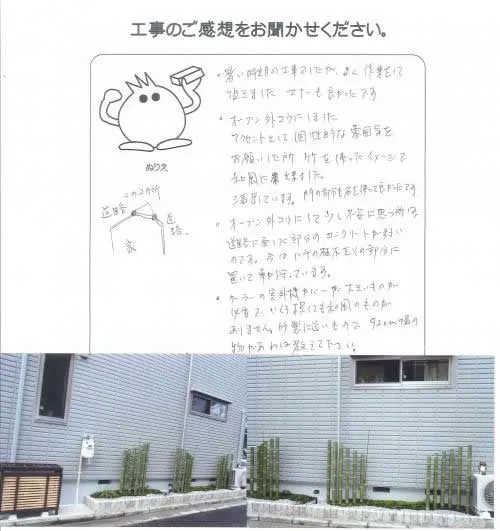 工事のご感想をお聞かせください。
・暑い時期の工事でしたが、よく作業をして
頂きました マナーも良かったです
・オープン外コウにしました
アクセントとして個性的な雰囲気を
お願いした所 竹を使ったイメージで
和風に
満足しています。門の部分も石を使って良かったです
ぬりえ
この2ヶ所
道路
道路
家
・オープン外コウにして少し不安に思う所は、
道路に面した部分のコンクリートが弱い
のです。今はハナの植木を その部分に
置いて車が
・クーラーの室外機カバーが大きいものが
必要で、いくら探しても和風のものが
ありません。竹製に近いもので 92cm幅の
物があれば教えて下さい。